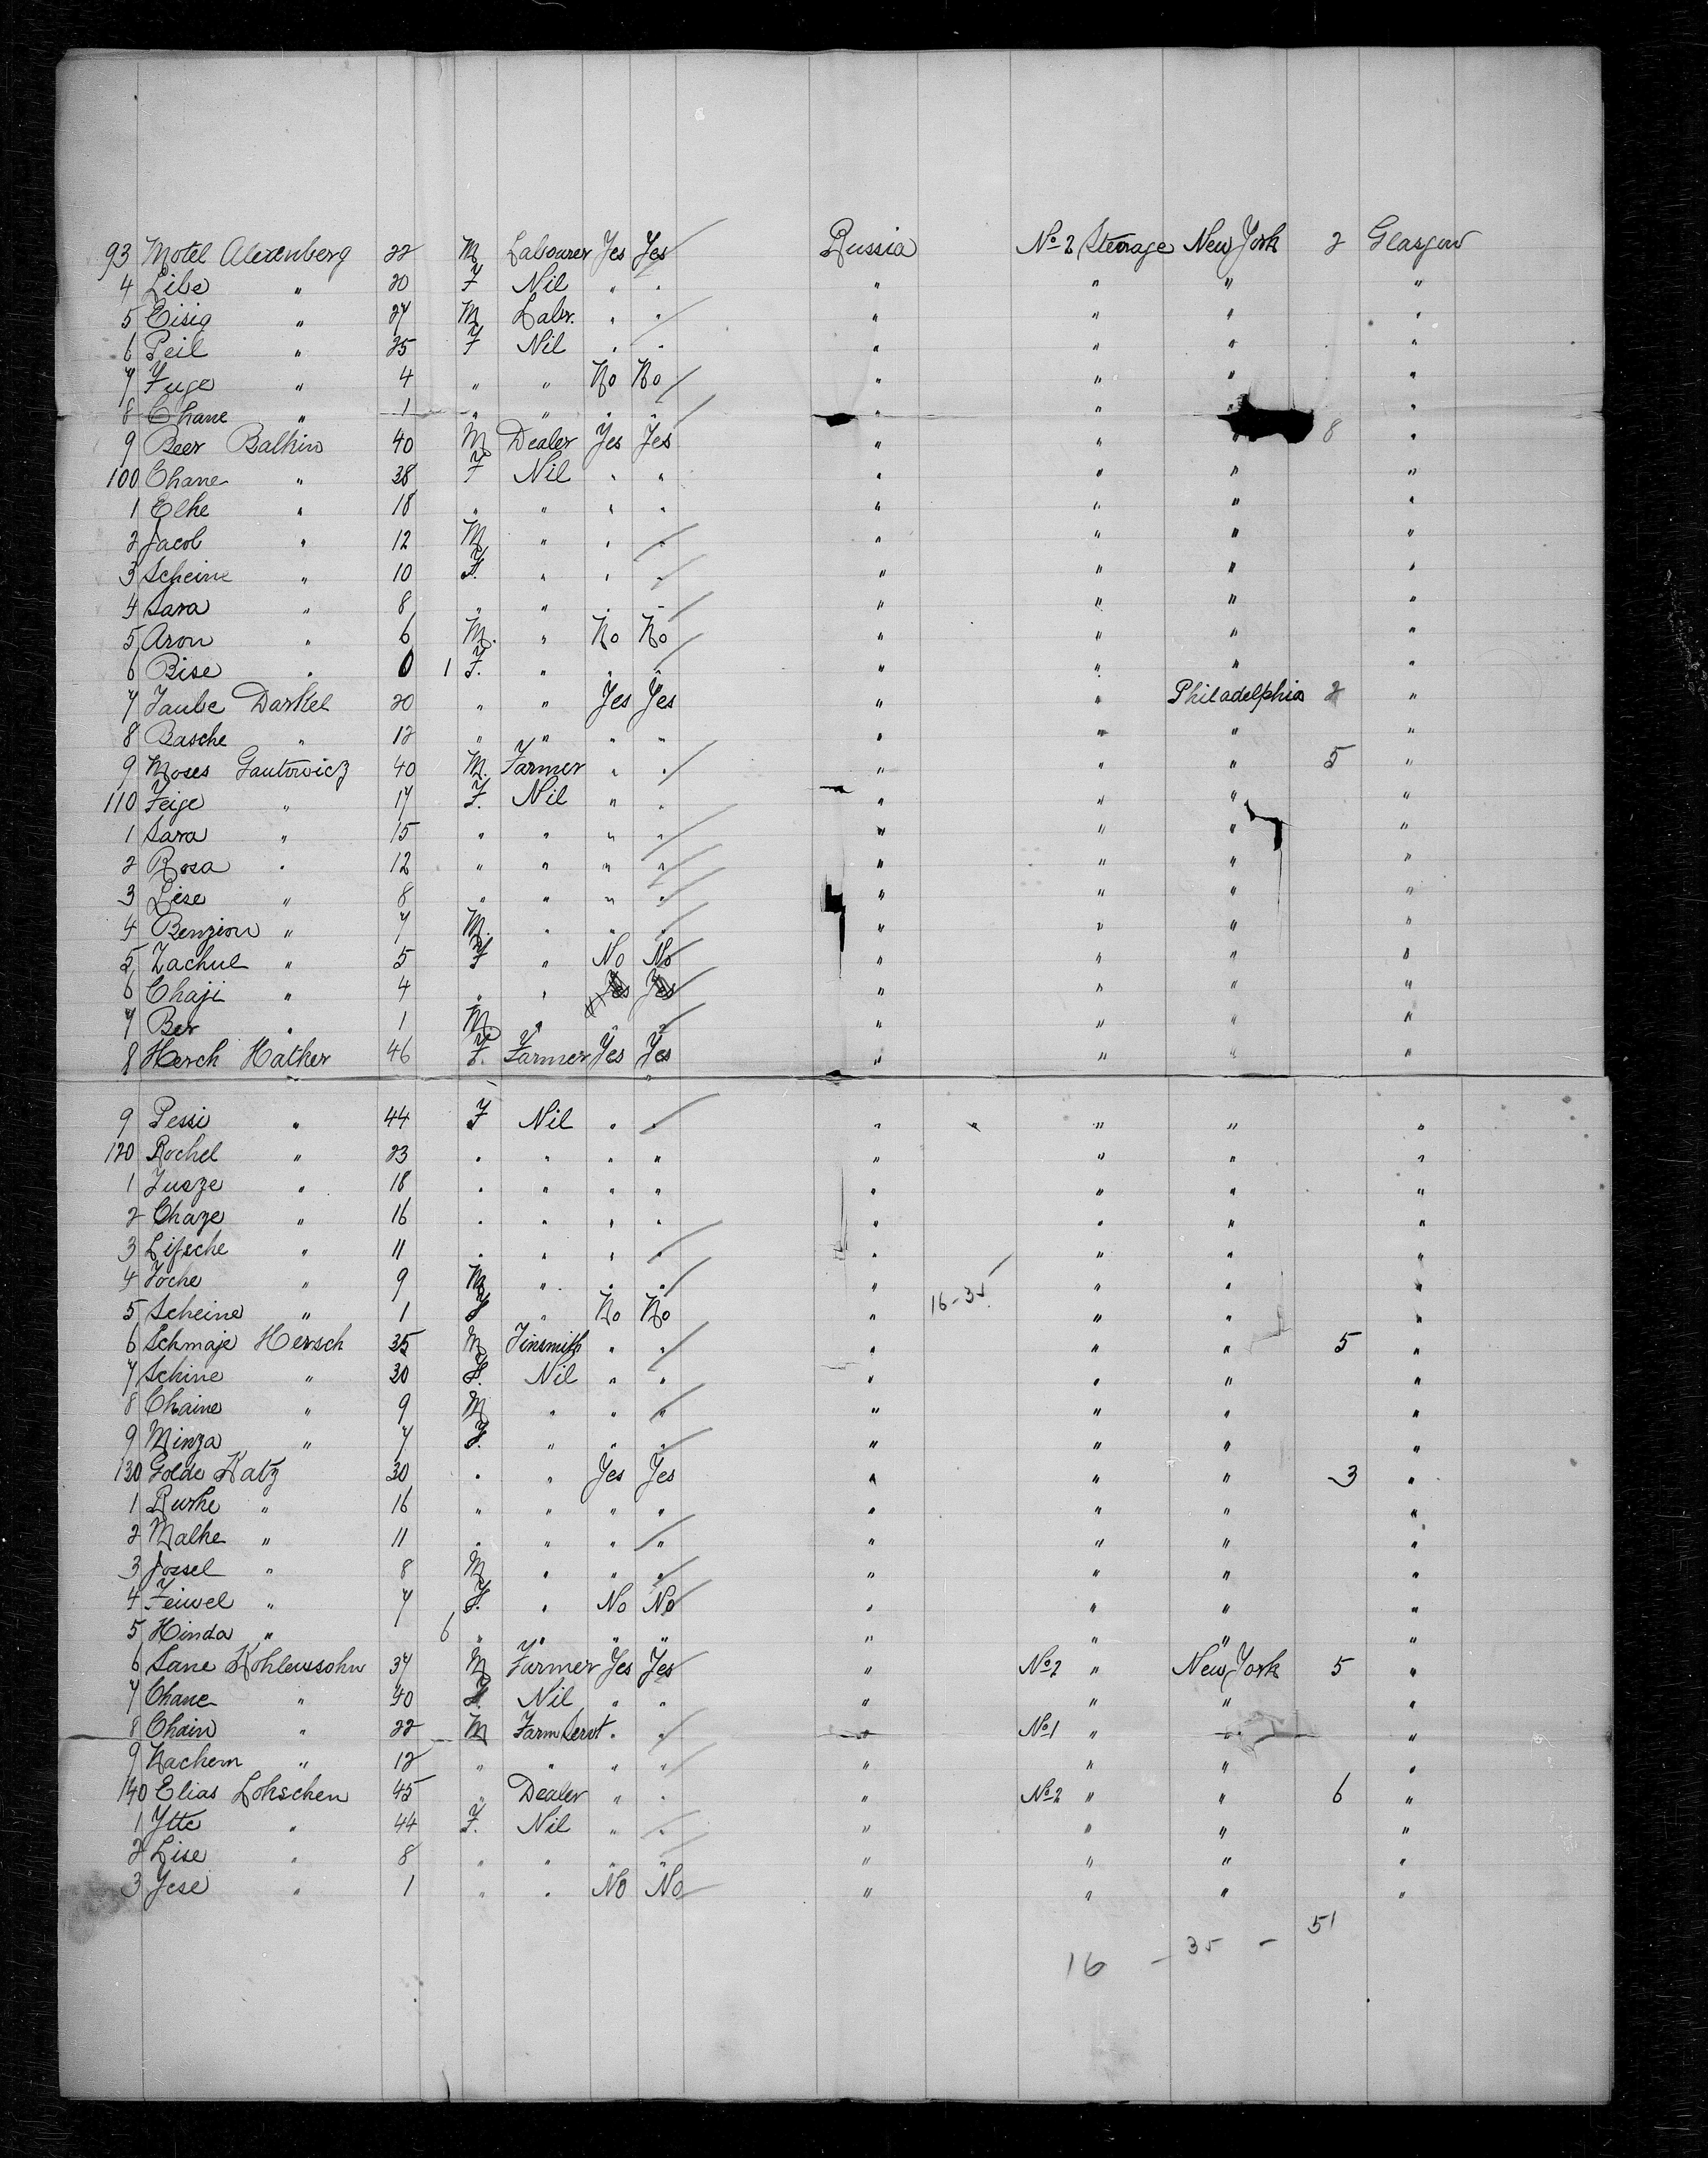 93 Motel Alexenberg 22 M Labourer Yes Yes Russia No 2 Steerage New York 2 Glasgow
4 Libe " 20 F Nil " " " " " "
5 Eisig " 27 M Labr. " " " " " "
6 Peil " 25 F Nil " " " " " "
7 Fuge " 4 " " No No " " " "
8 Chane " 1 " " " " " " "
9 Beer Balkin 40 M Dealer Yes Yes " " " 8 "
100 Chane " 38 F Nil " " " " " "
1 Elke " 18 " " " " " " " "
2 Jacob " 12 M " " " " " " "
3 Scheine " 10 F. " " " " " " "
4 Sara " 8 " " " " " " " "
5 Aron " 6 M. " No No " " " "
6 Bise " 0 1 F. " " " " " " "
7 Taube Darkel 20 " " Yes Yes " " Philadelphia 2 "
8 Basche " 12 " " " " " " " "
9 Moses Gautowicz 40 M. Farmer " " " " " 5 "
110 Feige " 17 F. Nil " " " " " "
1 Sara " 15 " " " " " " " "
2 Rosa " 12 " " " " " " " "
3 Lise " 8 " " " " " " " "
4 Benzion " 7 M. " " " " " " "
5 Zachul " 5 F " No No " " " "
6 Chaji " 4 " " Yes Yes " " " "
7 Ber " 1 M " " " " " " "
8 Herch Hather 46 F. Farmer Yes Yes " " " "
9 Pessi " 44 F Nil " " " " " " "
120 Rochel " 23 " " " " " " " "
1 Jusze " 18 " " " " " " " "
2 Chaze " 16 " " " " " " " "
3 Lifsche " 11 " " " " " " " "
4 Joche " 9 M " " " " " " "
5 Scheine " 1 F " No No " 16-35 " " "
6 Schmaje Hersch 35 M Tinsmith " " " " " 5 "
7 Schine " 30 F. Nil " " " " " "
8 Chaine " 9 M " " " " " " "
9 Minza " 7 F. " " " " " " "
130 Golde Katz 30 " " Yes Yes " " " 3 "
1 Rurke " 16 " " " " " " " "
2 Malke " 11 " " " " " " " "
3 Jossel " 8 M " " " " " " "
4 Feiwel " 7 F. " No No " " " "
5 Hinda " 6 " " " " " " " "
6 Sane Kohlenssohn 37 M Farmer Yes Yes " No 2 " New York 5 "
7 Chane " 40 F. Nil " " " " " "
8 Chain " 22 M Farm Servt " " " No 1 " " "
9 Nachem " 12 " " " " " " " "
140 Elias Lokschen 45 " Dealer " " " No 2 " " 6 "
1 Ytte " 44 F. Nil " " " " " "
2 Lise " 8 " " " " " " " "
3 Jese " 1 " " No No " " " "
16 - 35 - 51